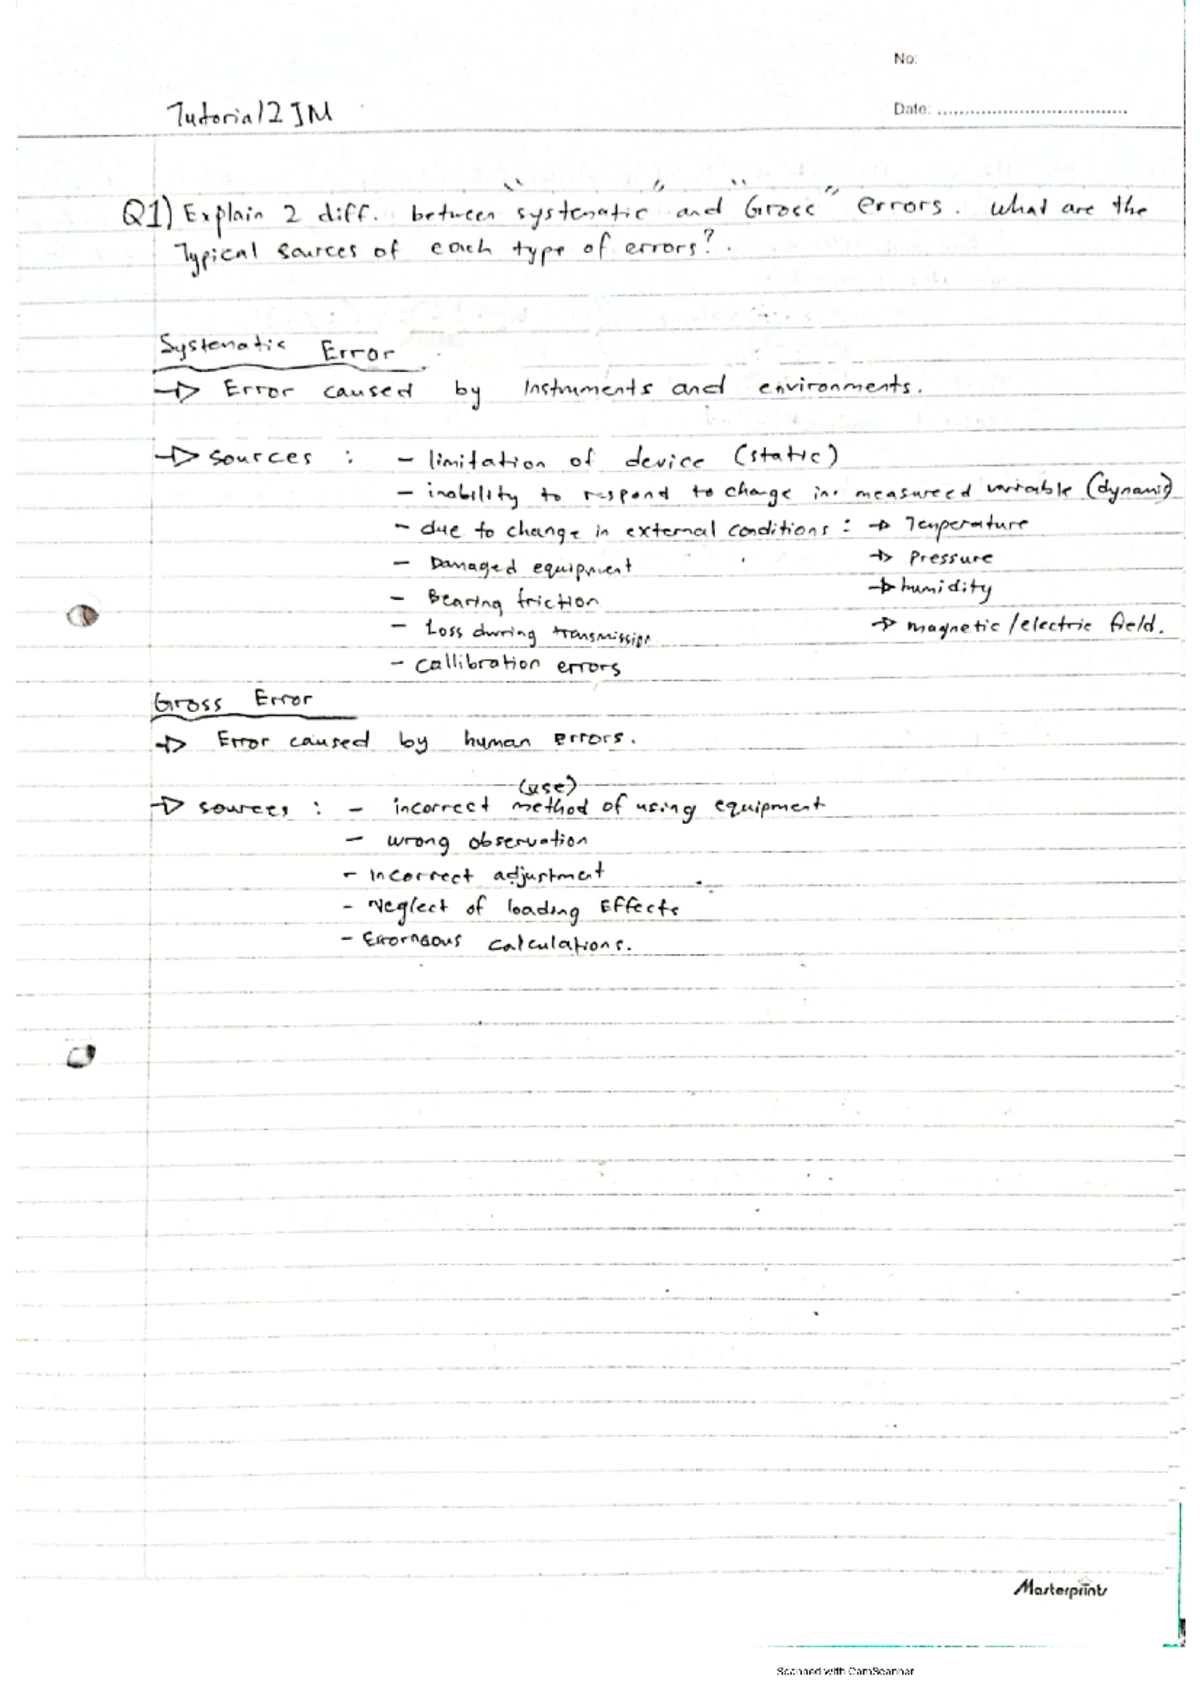 No:
Tutorial 2 IM
Date: ................................
Q1) Explain 2 diff. between "systematic" and "Gross" errors. What are the
Typical sources of each type of errors?.
Systematic Error
→ Error caused by Instruments and environments.
→ sources : - limitation of device (static)
- inability to respond to change in measureed variable (dynamic)
- due to change in external conditions : → Temperature
- Damaged equipment → Pressure
- Bearing friction → humidity
- Loss during transmission → magnetic/electric field.
- callibration errors
Gross Error
→ Error caused by human errors.
(use)
→ sources : - incorrect method of using equipment
- wrong observation
- Incorrect adjustment
- Neglect of loading Effects
- Errorneous calculations.
Masterprints
Scanned with CamScanner